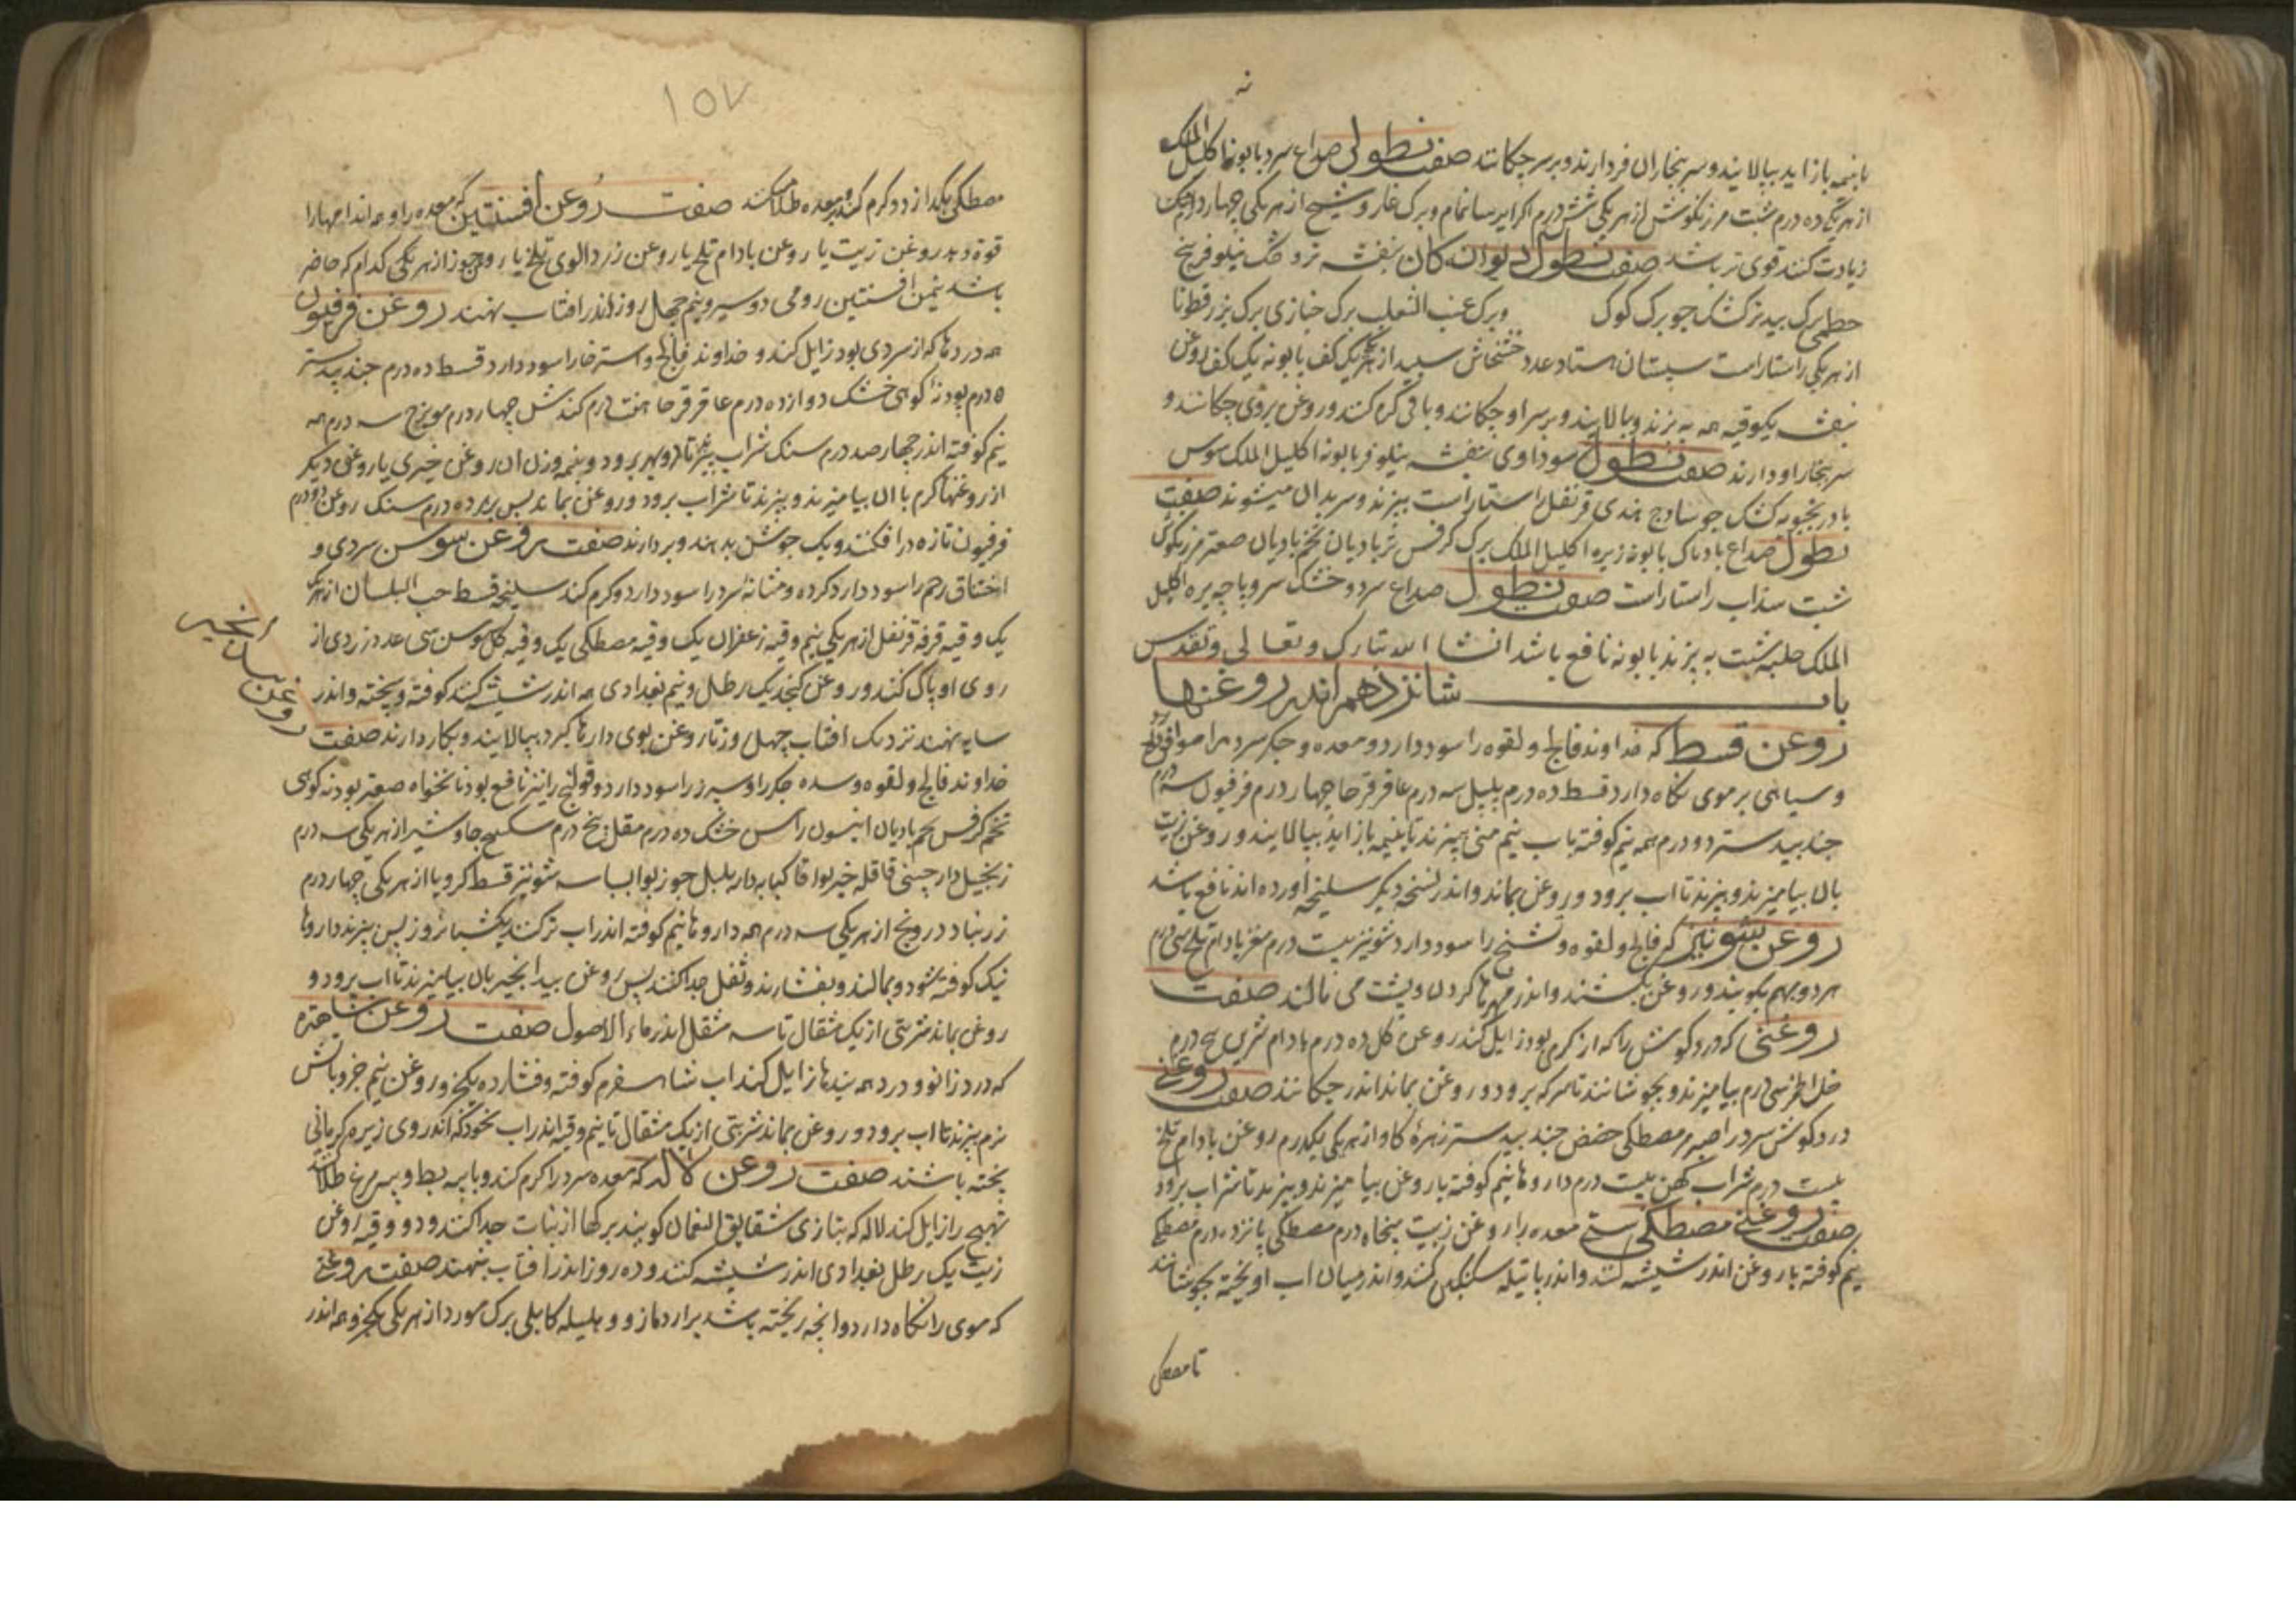 تا بنیمه باز اید بپالایند و سر ببخار ان فرو دارند و بر سر چکانند صفت نطولی صداع سرد بابونه اکلیل الملک
از هر یکی ده درم شبت مرزنکوش از هر یکی شش درم اکر ایرسا نمام و برک غار و شیح از هر یکی چهار درم
زیادت کنند قوی تر باشد صفت نطول دیوانکان بنفشه تر و خشک نیلوفر بیخ
خطمی برک بید تر کشک جو برک کوک و برک عنب الثعلب برک خبازی برک بزرقطونا
از هر یکی راستاراست سپستان هشتاد عدد خشخاش سپید از هر یکی یک کف بابونه یک کف روغن
بنفشه یکوقیه همه به پزند و بپالایند و بر سر او چکانند و باقی کرم کنند و روغن بروی چکانند و
سر ببخار او دارند صفت نطول سوداوی بنفشه نیلوفر بابونه اکلیل الملک سوس
بادرنجبویه کشک جو سادج هندی قرنفل راستاراست بپزند و سر بدان میشویند صفت
نطول صداع بادناک بابونه زیره اکلیل الملک برک کرفس تر بادیان تخم بادیان صعتر مرزنکوش
شبت سذاب راستاراست صفت نطول صداع سرد و خشک سر و پاچه بره اکلیل
الملک حلبه شبت به پزند بابونه نافع باشد انشا الله تبارک و تعالی و تقدس
باب شانزدهم اندر روغنها
روغن قسط که خداوند فالج و لقوه را سود دارد و معده و جکر سرد را موافق
و سیاهی بر موی نکاه دارد قسط ده درم پلپل سه درم عاقرقرحا چهار درم فرفیون سه درم
جندبیدستر دو درم همه نیم کوفته باب نیم منی بپزند تا بنیمه باز اید بپالایند و روغن زیت
بان بیامیزند و بپزند تا اب برود و روغن بماند و اندر نسخه دیکر سلیخه اورده اند نافع باشد
روغن شونیز که فالج و لقوه و تشنج را سود دارد شونیز بیست درم مغز بادام تلخ سی درم
هر دو بهم بکوبند و روغن بکشند و اندر مهرها کردن و پشت می مالند صفت
روغنی که درد کوش را که از کرمی بود زایل کند روغن کل ده درم بادام شیرین پنج درم
خل خمر سی درم بیامیزند و بجوشانند تا سرکه برود و روغن بماند اندر چکانند صفت روغنی
درد کوش سرد را صبر مر مصطکی حضض جندبیدستر زهره کاو از هر یکی یکدرم روغن بادام تلخ
بیست درم شراب کهن بیست درم داروها نیم کوفته با روغن بیامیزند و بپزند تا شراب برود
صفت روغن مصطکی سستی معده را روغن زیت پنجاه درم مصطکی پانزده درم مصطکی
نیم کوفته با روغن اندر شیشه کنند و اندر پاتیله سنکین کنند و اندر میان اب اویخته بجوشانند
تا مصطکی
۱۵۷
مصطکی بکدازد و کرم کنند و بر معده طلا کنند صفت روغن افسنتین که معده را و همه اندامها را
قوة دهد روغن زیت یا روغن بادام تلخ یا روغن زردالوی تلخ یا روغن جوز از هر یکی کدام که حاضر
باشد نیم من افسنتین رومی دو سیر و نیم چهل روز اندر افتاب بنهند روغن فرفیون
همه دردها که از سردی بود زایل کند و خداوند فالج و استرخا را سود دارد قسط ده درم جندبیدستر
۵ درم پودنه کوهی خشک دوازده درم عاقرقرحا هفت درم کندش چهار درم مویزج سه درم همه
نیم کوفته اندر چهار صد درم سنک شراب بپزند تا دو بهر برود و بنیمه وزن ان روغن خیری یا روغن دیکر
از روغنها کرم با ان بیامیزند و بپزند تا شراب برود و روغن بماند پس بهر ده درم سنک روغن دو درم
فرفیون تازه درافکنند و یک جوشش بدهند و بردارند صفت روغن سوسن سردی و
اختناق رحم را سود دارد کرده و مثانه سرد را سود دارد و کرم کند سلیخه قسط حب البلسان از هر یکی
یک وقیه قرفه قرنفل از هر یکی نیم وقیه زعفران یک وقیه مصطکی یک وقیه کل سوسن سی عدد زردی از
روی او پاک کنند و روغن کنجد یک رطل و نیم بغدادی همه اندر شیشه کنند کوفته و بیخته و اندر
سایه بنهند نزدیک افتاب چهل روز تا روغن بوی دارها کیرد بپالایند و بکار دارند صفت
روغن بیدانجیر
خداوند فالج و لقوه و سده جکر را و سپرز را سود دارد و قولنج را نیز نافع بود نانخواه صعتر پودنه کوهی
تخم کرفس تخم بادیان انیسون راسن خشک ده درم مقل پنج درم سکبینج جاوشیر از هر یکی سه درم
زنجبیل دارچینی قاقله خیربوا قاکبابه دار پلپل جوزبوا بسباسه شونیز قسط کرویا از هر یکی چهار درم
زرنباد درونج از هر یکی سه درم همه داروها نیم کوفته اندر اب تر کنند یکشبانروز پس بپزند داروها
نیک کوفته شود و بمالند و بفشارند و ثفل جدا کنند پس روغن بیدانجیر بان بیامیزند تا اب برود و
روغن بماند شربتی از یک مثقال تا سه مثقال اندر ماء الاصول صفت روغن شاهتره
که درد زانو و درد همه بندها زایل کند اب شاهسفرم کوفته و فشارده یکجزو روغن نیم جزو باتش
نرم بپزند تا اب برود و روغن بماند شربتی از یک مثقال تا نیم وقیه اندر اب نخود که اندر وی زیره کرمانی
پخته باشند صفت روغن لاله که معده سرد را کرم کند و با پیه بط و پیه مرغ طلا کنند
تهیج را زایل کند لاله که بتازی شقایق النعمان کویند برکها از نبات جدا کنند و دو وقیه روغن
زیت یک رطل بغدادی اندر شیشه کنند و ده روز اندر افتاب بنهند صفت روغنی
که موی را نکاه دارد و انچه ریخته باشد برارد مازو و هلیله کابلی برک مورد از هر یکی یکجزو همه اندر